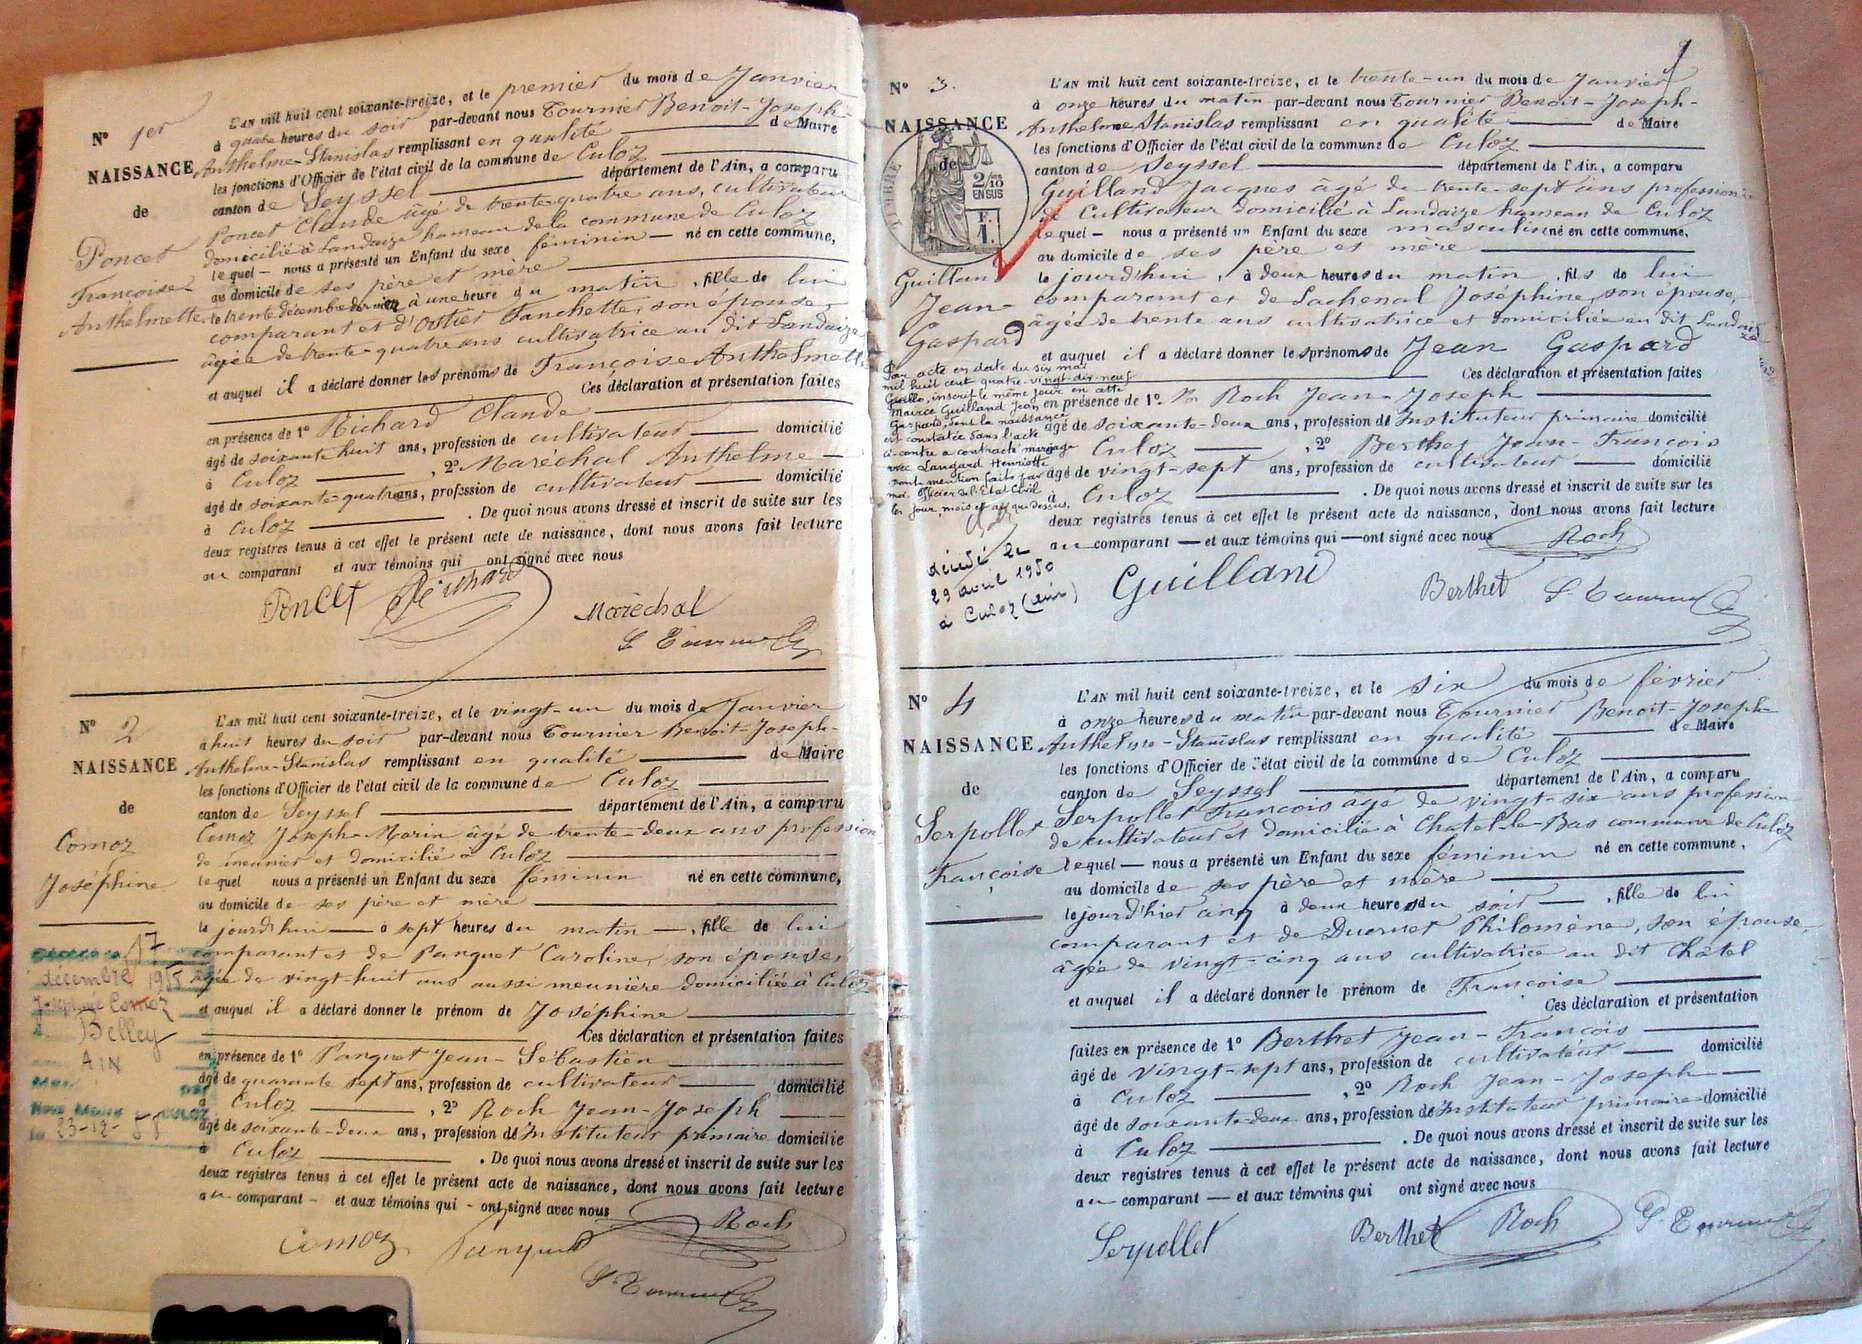 N° 1er
NAISSANCE
de
Poncet
Françoise
Anthelmette
L'AN mil huit cent soixante-treize, et le premier du mois de Janvier
à quatre heures du soir par-devant nous Tournier Benoit-Joseph-
Anthelme-Stanislas remplissant en qualité de Maire
les fonctions d'Officier de l'état civil de la commune de Culoz
canton de Seyssel département de l'Ain, a comparu
Poncet Claude âgé de trente-quatre ans, cultivateur
domicilié à Landaize hameau de la commune de Culoz
lequel nous a présenté un Enfant du sexe féminin né en cette commune,
au domicile de ses père et mère
le trente décembre dernier à une heure du matin, fille de lui
comparant et d'Ostier Fanchette, son épouse,
âgée de trente-quatre ans cultivatrice au dit Landaize
et auquel il a déclaré donner les prénoms de Françoise Anthelmette
Ces déclaration et présentation faites
en présence de 1° Richard Claude
âgé de soixante huit ans, profession de cultivateur domicilié
à Culoz, 2° Maréchal Anthelme
âgé de soixante-quatre ans, profession de cultivateur domicilié
à Culoz. De quoi nous avons dressé et inscrit de suite sur les
deux registres tenus à cet effet le présent acte de naissance, dont nous avons fait lecture
au comparant et aux témoins qui ont signé avec nous
Poncet Richard
Maréchal
S. Tournier
N° 2
NAISSANCE
de
Comoz
Joséphine
17
décembre 1955
Joséphine Comoz
à Belley
AIN
23-12-58
L'AN mil huit cent soixante-treize, et le vingt-un du mois de Janvier
à huit heures du soir par-devant nous Tournier Benoit-Joseph-
Anthelme-Stanislas remplissant en qualité de Maire
les fonctions d'Officier de l'état civil de la commune de Culoz
canton de Seyssel département de l'Ain, a comparu
Comoz Joseph-Marin âgé de trente-deux ans profession
de meunier et domicilié à Culoz
lequel nous a présenté un Enfant du sexe féminin né en cette commune,
au domicile de ses père et mère
le jourd'hui à sept heures du matin, fille de lui
comparant et de Panquet Caroline, son épouse,
âgée de vingt-huit ans aussi meunière domiciliée à Culoz
et auquel il a déclaré donner le prénom de Joséphine
Ces déclaration et présentation faites
en présence de 1° Panquet Jean-Sébastien
âgé de quarante sept ans, profession de cultivateur domicilié
à Culoz, 2° Roch Jean-Joseph
âgé de soixante-deux ans, profession de Instituteur primaire domicilié
à Culoz. De quoi nous avons dressé et inscrit de suite sur les
deux registres tenus à cet effet le présent acte de naissance, dont nous avons fait lecture
au comparant - et aux témoins qui - ont signé avec nous
Roch
Comoz Panquet
S. Tournier
1
N° 3.
NAISSANCE
de
TIMBRE
2/10 EN SUS
F.
1.
Guilland
Jean-
Gaspard
Par acte en date du six mai
mil huit cent quatre-vingt-dix-neuf
inscrit le même jour en cette
Mairie Guilland Jean
Gaspard, dont la naissance
est constatée dans l'acte
ci-contre a contracté mariage
avec Henriette
dont mention faite par
moi, Officier de l'Etat Civil
les jour, mois et an que dessus.
décédé le
29 avril 1950
à Culoz (Ain)
L'AN mil huit cent soixante-treize, et le trente-un du mois de Janvier
à onze heures du matin par-devant nous Tournier Benoit-Joseph-
Anthelme Stanislas remplissant en qualité de Maire
les fonctions d'Officier de l'état civil de la commune de Culoz
canton de Seyssel département de l'Ain, a comparu
Guilland Jacques âgé de trente-sept ans profession
de Cultivateur domicilié à Landaize hameau de Culoz
lequel - nous a présenté un Enfant du sexe masculin né en cette commune,
au domicile de ses père et mère
le jourd'hui, à deux heures du matin, fils de lui
comparant et de Lachenal Joséphine, son épouse,
âgée de trente ans cultivatrice et domiciliée au dit Landaize
et auquel il a déclaré donner les prénoms de Jean Gaspard
Ces déclaration et présentation faites
en présence de 1° Roch Jean-Joseph
âgé de soixante-deux ans, profession de Instituteur primaire domicilié
à Culoz, 2° Berthet Jean-François
âgé de vingt-sept ans, profession de cultivateur domicilié
à Culoz. De quoi nous avons dressé et inscrit de suite sur les
deux registres tenus à cet effet le présent acte de naissance, dont nous avons fait lecture
au comparant — et aux témoins qui — ont signé avec nous Roch
Guilland Berthet S. Tournier
N° 4
NAISSANCE
de
Serpollet
Françoise
L'AN mil huit cent soixante-treize, et le six du mois de février
à onze heures du matin par-devant nous Tournier Benoit-Joseph-
Anthelme-Stanislas remplissant en qualité de Maire
les fonctions d'Officier de l'état civil de la commune de Culoz
canton de Seyssel département de l'Ain, a comparu
Serpollet François âgé de vingt-six ans profession
de cultivateur et domicilié à Chatel-le-Bas commune de Culoz
lequel — nous a présenté un Enfant du sexe féminin né en cette commune,
au domicile de ses père et mère
le jourd'hier cinq à deux heures du soir, fille de lui
comparant et de Philomène, son épouse,
âgée de vingt-cinq ans cultivatrice au dit Châtel
et auquel il a déclaré donner le prénom de Françoise
Ces déclaration et présentation
faites en présence de 1° Berthet Jean-François
âgé de vingt-sept ans, profession de cultivateur domicilié
à Culoz, 2° Roch Jean-Joseph
âgé de soixante-deux ans, profession de Instituteur primaire domicilié
à Culoz. De quoi nous avons dressé et inscrit de suite sur les
deux registres tenus à cet effet le présent acte de naissance, dont nous avons fait lecture
au comparant — et aux témoins qui ont signé avec nous
Serpollet Berthet Roch S. Tournier